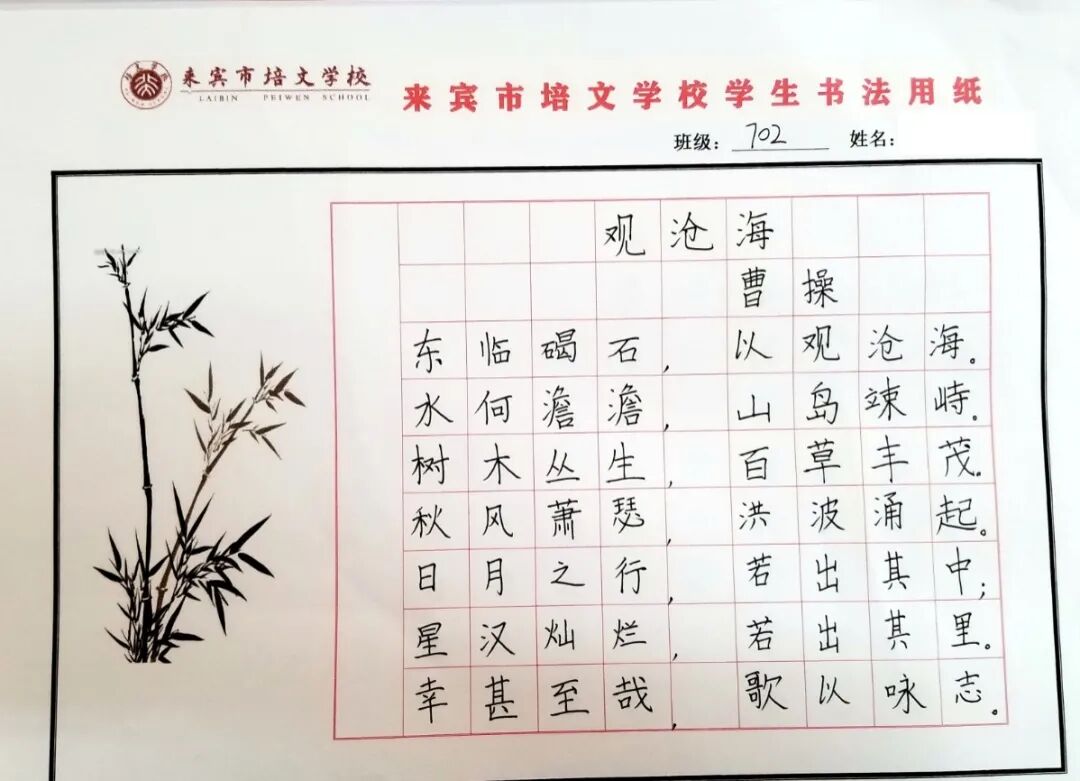 来宾市培文学校
LAIBIN PEIWEN SCHOOL
来宾市培文学校学生书法用纸
班级：702 姓名：
观沧海
曹操
东临碣石，以观沧海。
水何澹澹，山岛竦峙。
树木丛生，百草丰茂。
秋风萧瑟，洪波涌起。
日月之行，若出其中；
星汉灿烂，若出其里。
幸甚至哉，歌以咏志。